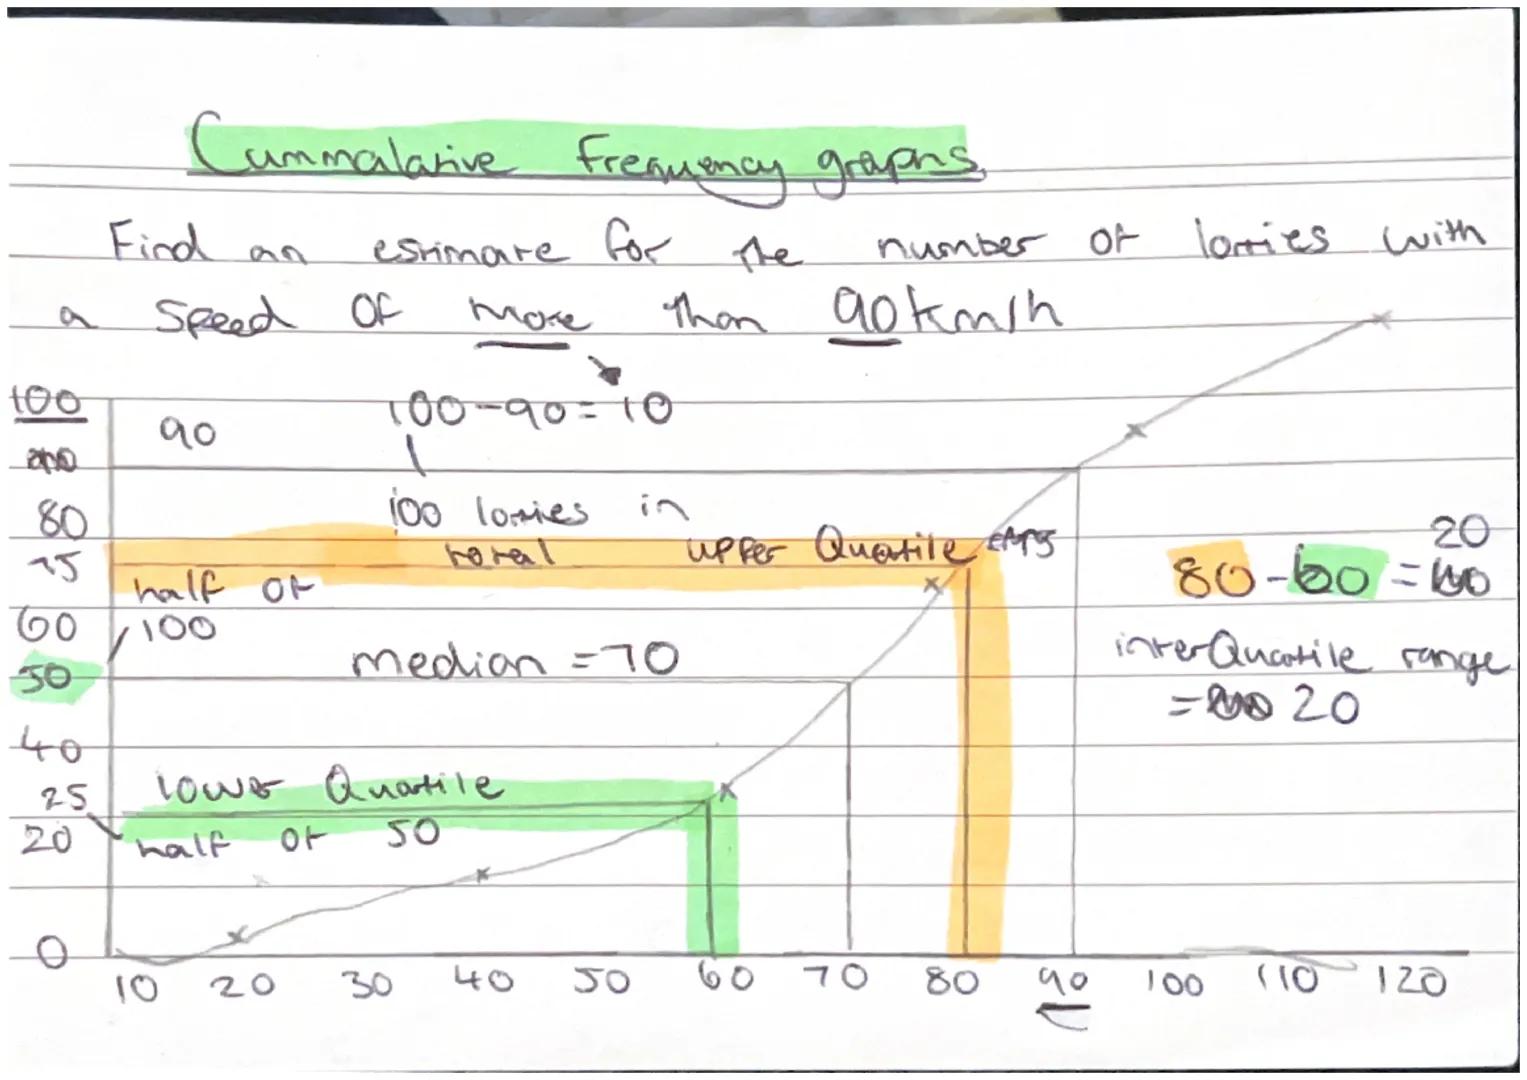 Cummalative frequency graphs
Find an estimate for the number of lorries with
a speed of more than 90km/h
100
90
100-90=10
80
100 lorries in
total
upper Quartile
20
75
80-60=
half of
100
60
interQuartile range
median =70
50
= 20
40
lower Quartile
25
half of 50
20
0
10 20 30 40 50 60 70 80 90 100 110 120